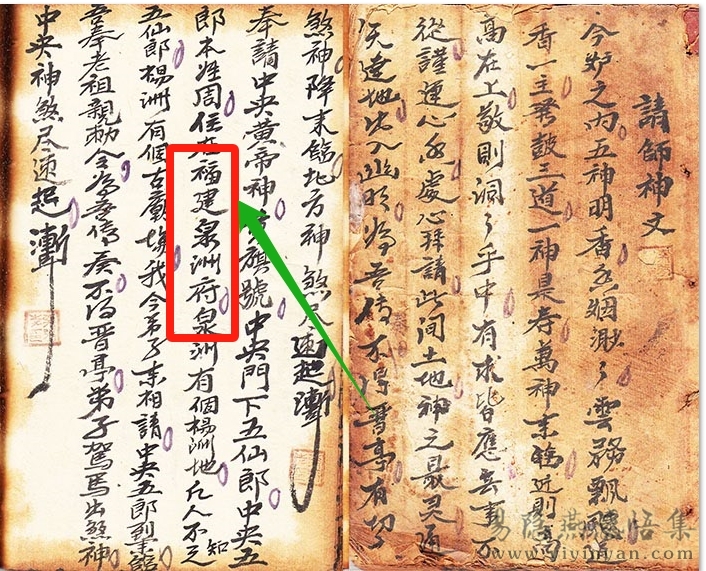 請師神文
今炉之内五神明香烟渺々雲務飄
香一主發鼓三道一神景奔萬神來臨近則
高在上敬則洞々乎中有求皆應無事不
從謹運心處心拜請此间土地神之最灵通
天達地出入幽明為吾傳不得晋亭有切了
煞神降來臨地方神煞尽速起漸
奉請中央黄帝神君旗號中央門下五仙郎中央五
郎本姓周住在福建泉洲府泉洲有個楊洲地凡人不足知
五仙郎楊洲有個古嚴塲我今弟子來相請中央五郎到來臨
吾奉老祖親勅令為吾傳奏不得晋亭弟子駕馬出煞神
中央神煞尽速起漸
易隱燕感悟集
www.yiyinyan.com